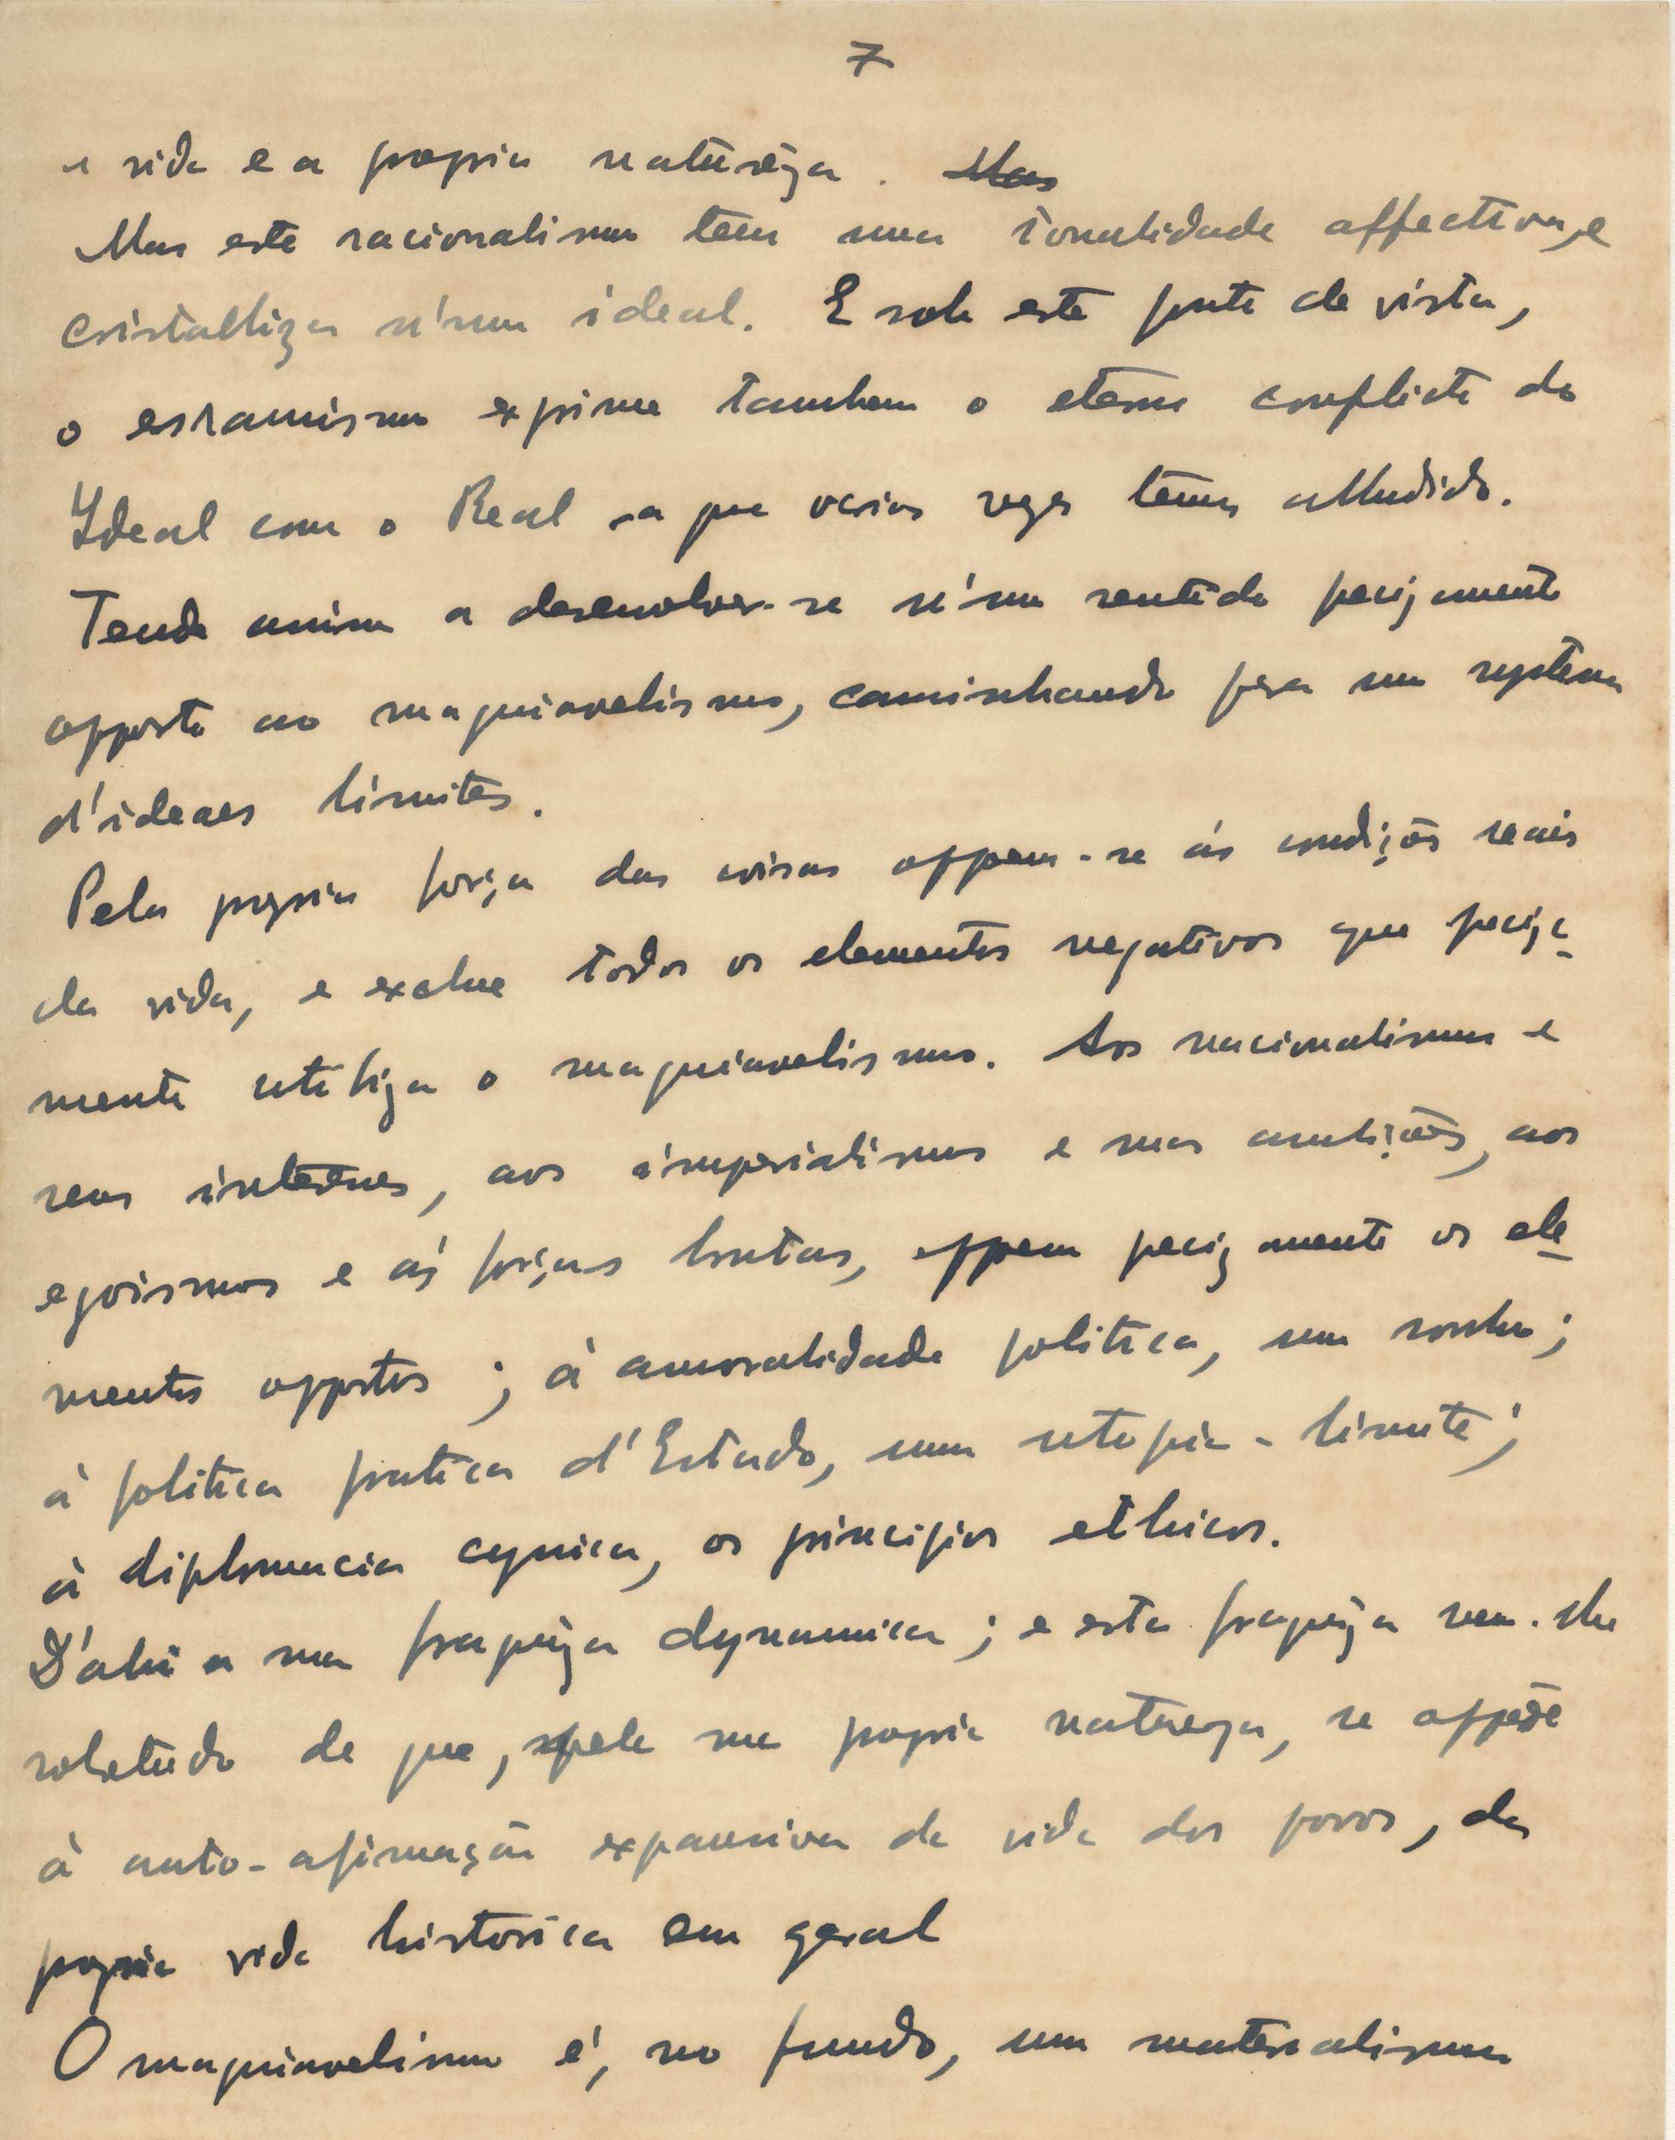 7
a vida e a propria naturêza. Mas
Mas este racionalismo tem uma tonalidade affectiva, e
cristalliza n'um ideal. E sob este ponto de vista,
o erasmismo exprime tambem o eterno conflicto do
Ideal com o Real a que varias vezes temos alludido.
Tende assim a desenvolver-se n'um sentido precisamente
opposto ao maquiavelismo, caminhando para um systema
d'ideaes limites.
Pela propria força das coisas oppoem-se ás condições reais
da vida, e exclue todos os elementos negativos que precisa-
mente utiliza o maquiavelismo. Aos nacionalismos e
seus interesses, aos imperialismos e suas ambições, aos
egoismos e ás forças brutas, oppoem precisamente os ele-
mentos oppostos; á amoralidade politica, um sonho;
á politica pratica d'Estado, uma utopia-limite;
á diplomacia cynica, os principios ethicos.
D'ahi a sua fraquêza dynamica; e esta fraquêza vem-lhe
sobretudo de que, pela sua propria natureza, se oppõe
á auto-afirmação expansiva da vida dos povos, da
propria vida historica em geral
O maquiavelismo é, no fundo, um materialismo